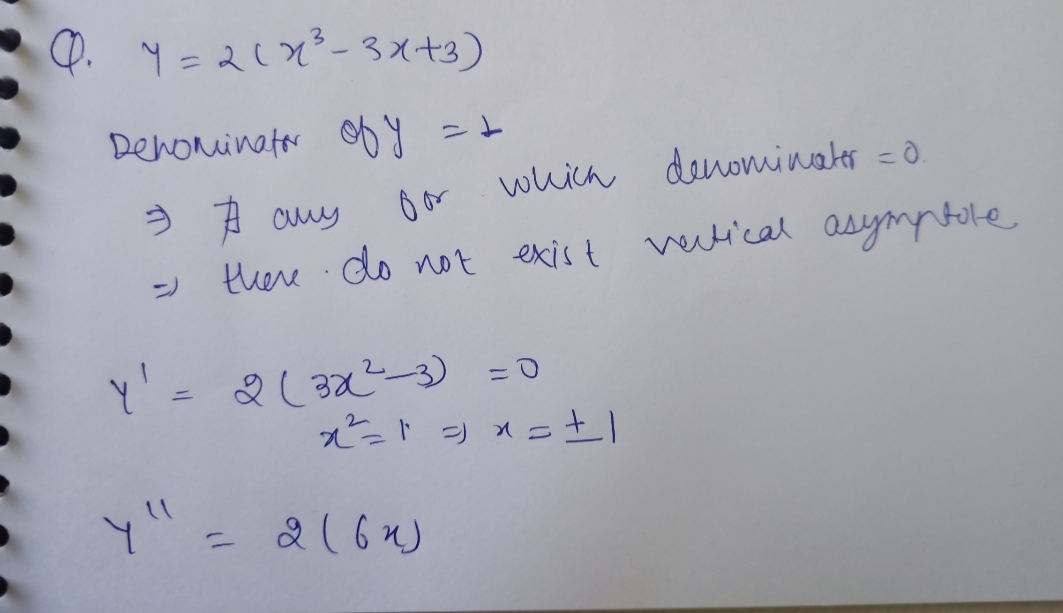 Q. y = 2(x³-3x+3)
Denominator of y = 1
⇒ ∄ any for which denominator = 0.
⇒ there do not exist vertical asymptote
y' = 2(3x²-3) = 0
x² = 1 ⇒ x = ±1
y'' = 2(6x)